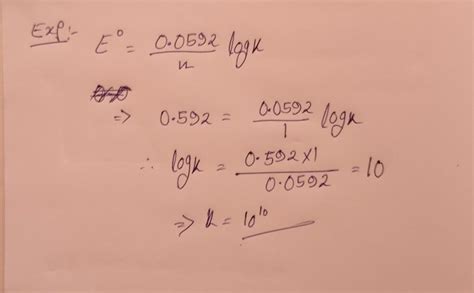 Exp:-
E° = 0.0592/n log k
⇒ 0.592 = 0.0592/1 log k
∴ log k = 0.592×1/0.0592 = 10
⇒ k = 10^10